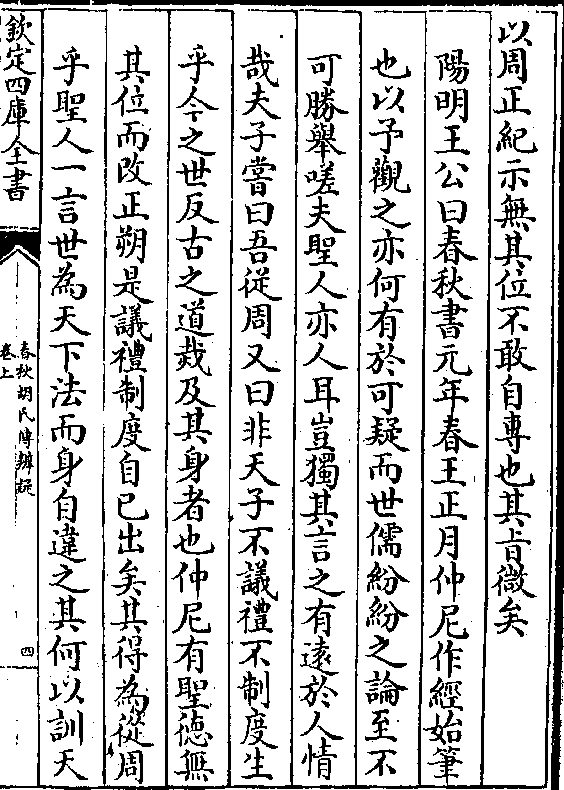 以周正紀示無其位不敢自専也其㫖微矣
陽明王公曰春秋書元年春王正月仲尼作經始筆
也以予觀之亦何有於可疑而世儒紛紛之論至不
可勝舉嗟夫聖人亦人耳豈獨其言之有遠於人情
哉夫子嘗曰吾從周又曰非天子不議禮不制度生
乎今之世反古之道烖及其身者也仲尼有聖徳無
其位而改正朔是議禮制度自已出矣其得為從周
乎聖人一言世為天下法而身自違之其何以訓天
欽定四庫全書
春秋胡氏傳辨疑
卷上
四